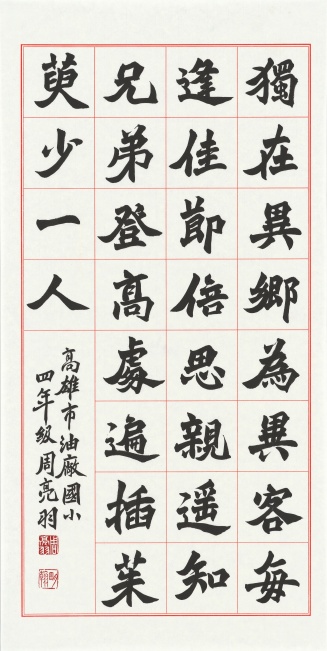 獨在異鄉為異客每
逢佳節倍思親遥知
兄弟登高處遍插茱
萸少一人
高雄市油廠國小
四年級周亮羽